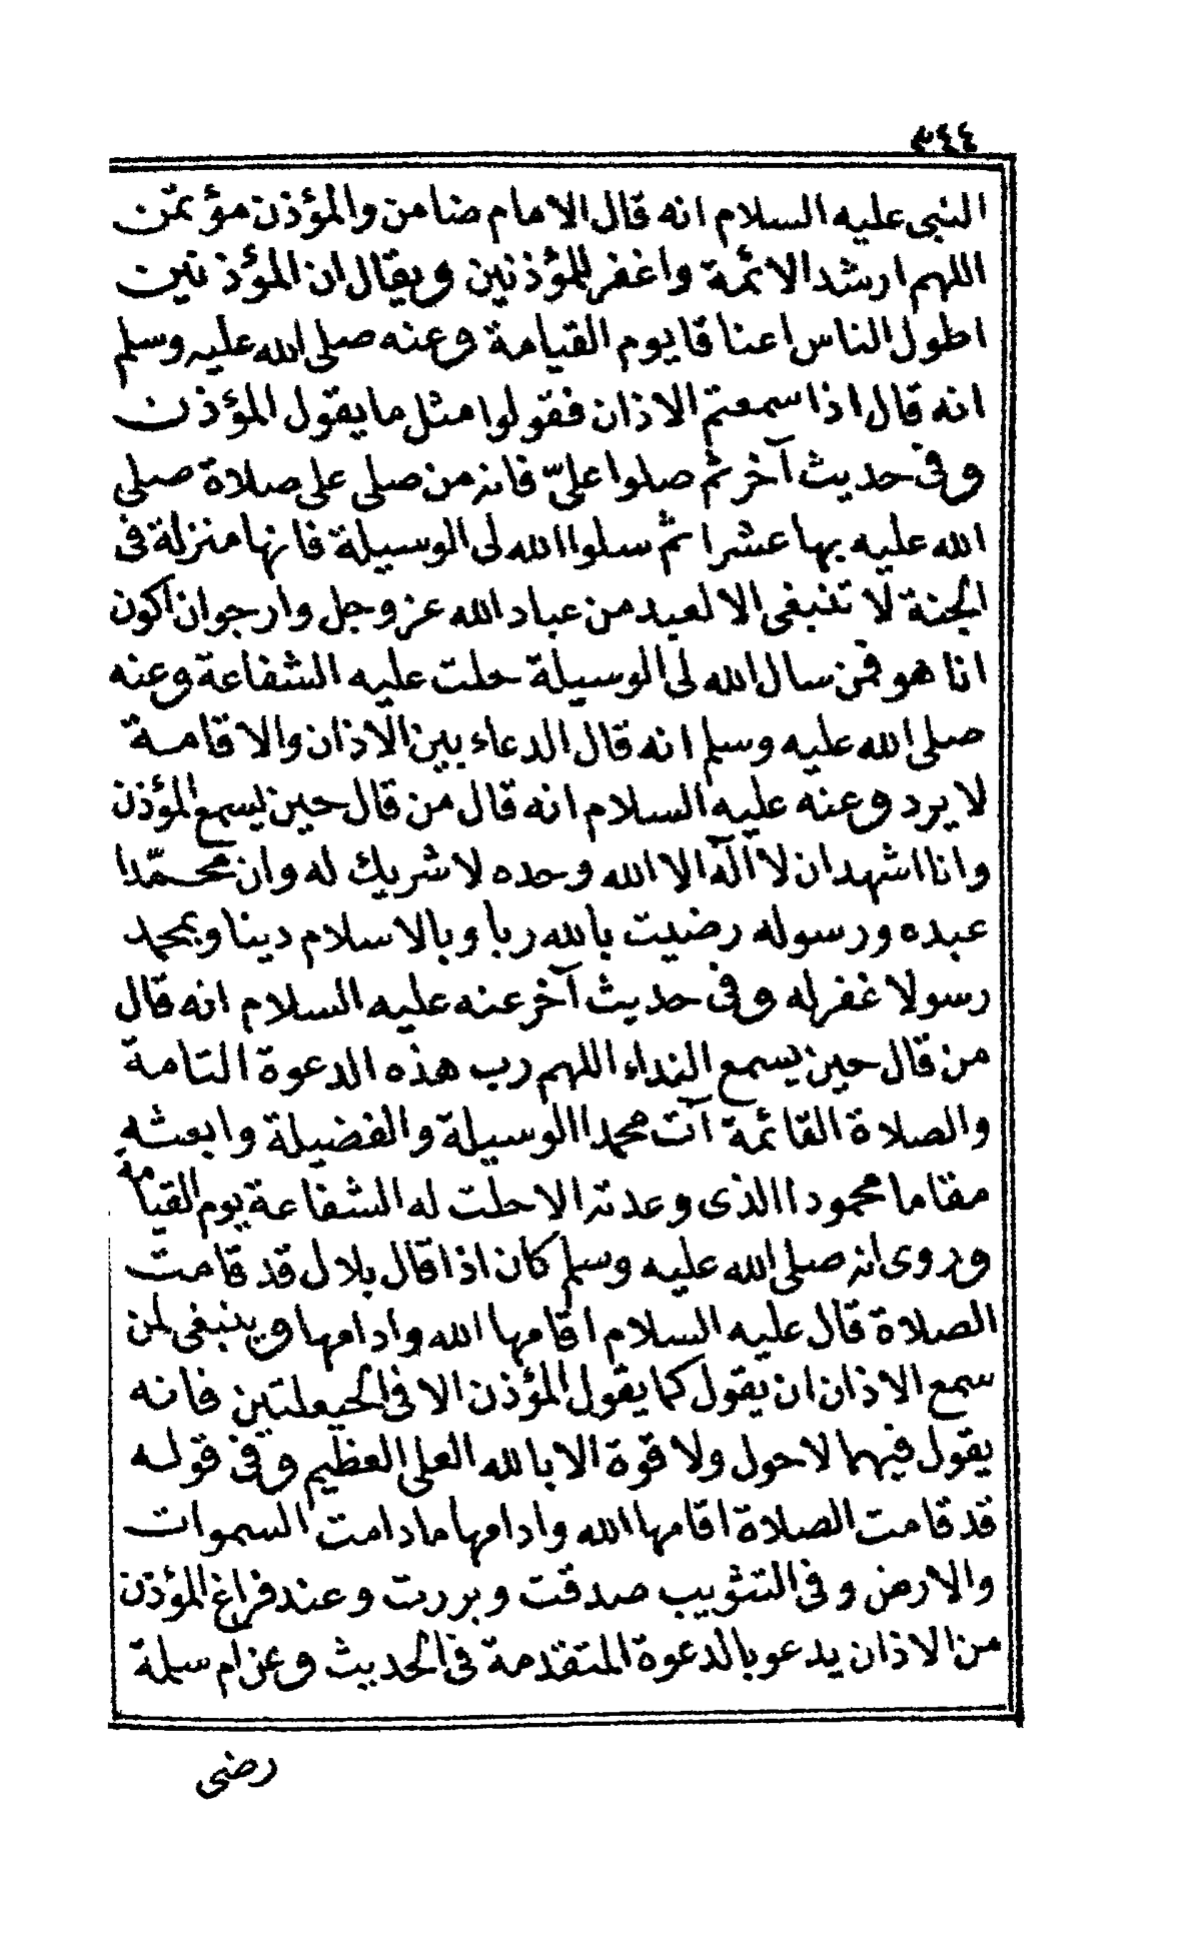 ٣٤٤
النبى عليه السلام انه قال الامام ضامن والمؤذن مؤتمن
اللهم ارشد الائمة واغفر للمؤذنين ويقال ان المؤذنين
اطول الناس اعناقا يوم القيامة وعنه صلى الله عليه وسلم
انه قال اذا سمعتم الاذان فقولوا مثل ما يقول المؤذن
وفى حديث آخر ثم صلوا علىّ فانه من صلى على صلاة صلى
الله عليه بها عشرا ثم سلوا الله لى الوسيلة فانها منزلة فى
الجنة لا تنبغى الا لعبد من عباد الله عز وجل وارجو ان اكون
انا هو فمن سال الله لى الوسيلة حلت عليه الشفاعة وعنه
صلى الله عليه وسلم انه قال الدعاء بين الاذان والاقامة
لا يرد وعنه عليه السلام انه قال من قال حين يسمع المؤذن
وانا اشهد ان لا آله الا الله وحده لا شريك له وان محمّدا
عبده ورسوله رضيت بالله ربا وبالاسلام دينا وبمحمد
رسولا غفر له وفى حديث آخر عنه عليه السلام انه قال
من قال حين يسمع النداء اللهم رب هذه الدعوة التامة
والصلاة القائمة آت محمدا الوسيلة والفضيلة وابعثه
مقاما محمودا الذى وعدته الا حلت له الشفاعة يوم القيامة
وروى انه صلى الله عليه وسلم كان اذا قال بلال قد قامت
الصلاة قال عليه السلام اقامها الله وادامها وينبغى لمن
سمع الاذان ان يقول كما يقول المؤذن الا فى الحيعلتين فانه
يقول فيهما لا حول ولا قوة الا بالله العلى العظيم وفى قوله
قد قامت الصلاة اقامها الله وادامها ما دامت السموات
والارض وفى التثويب صدقت وبررت وعند فراغ المؤذن
من الاذان يدعو بالدعوة المتقدمة فى الحديث وعن ام سلمة
رضى